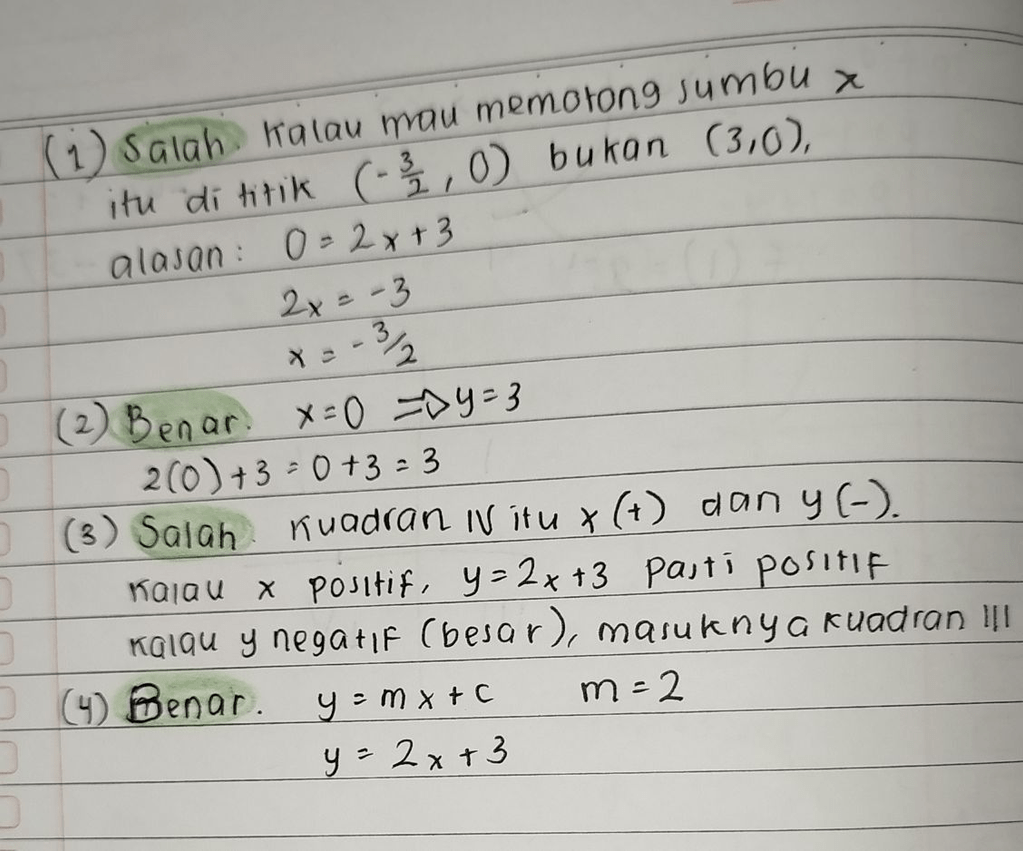 (1) Salah. Kalau mau memotong sumbu x
itu di titik (-3/2, 0) bukan (3,0),
alasan: 0 = 2x + 3
2x = -3
x = -3/2
(2) Benar. x=0 ⇒ y=3
2(0)+3 = 0+3 = 3
(3) Salah. Kuadran IV itu x (+) dan y (-).
Kalau x positif, y=2x+3 pasti positif
Kalau y negatif (besar), masuknya kuadran III
(4) Benar. y = mx + c m = 2
y = 2x + 3